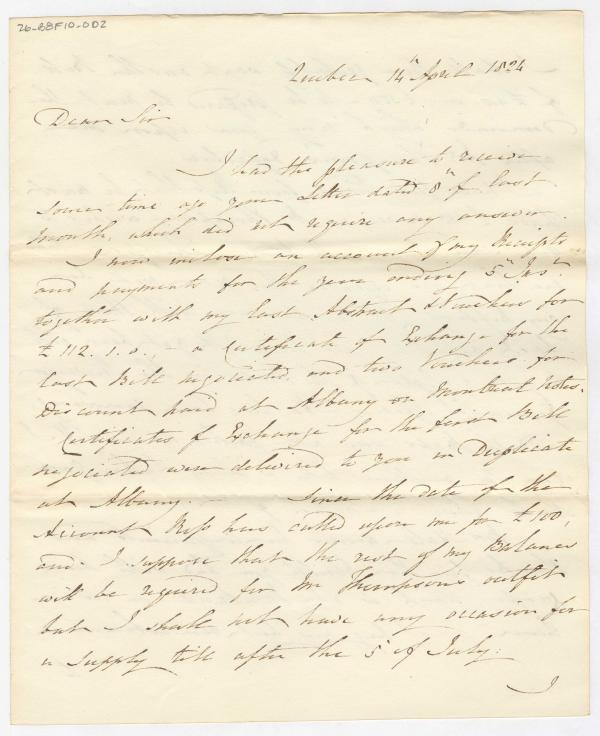 26-88F10-0D2
Quebec 14th April 1824
Dear Sir
I had the pleasure to receive
some time ago your Letter dated 8th of last
Month, which did not require any answer.
I now inclose an account of my Receipts
and payments for the year ending 5th Inst.
together with my last Abstract & Vouchers for
£112.1.0, - a Certificate of Exchange for the
last Bill negociated, and two Vouchers for
Discount paid at Albany on Montreal Notes.
Certificates of Exchange for the first Bill
negociated were delivered to you in Duplicate
at Albany. — Since the date of the
Account Ross has called upon me for £100,
and I suppose that the rest of my Balance
will be required for Mr Thompson's outfit
but I shall not have any occasion for
a supply till after the 5th of July.
I